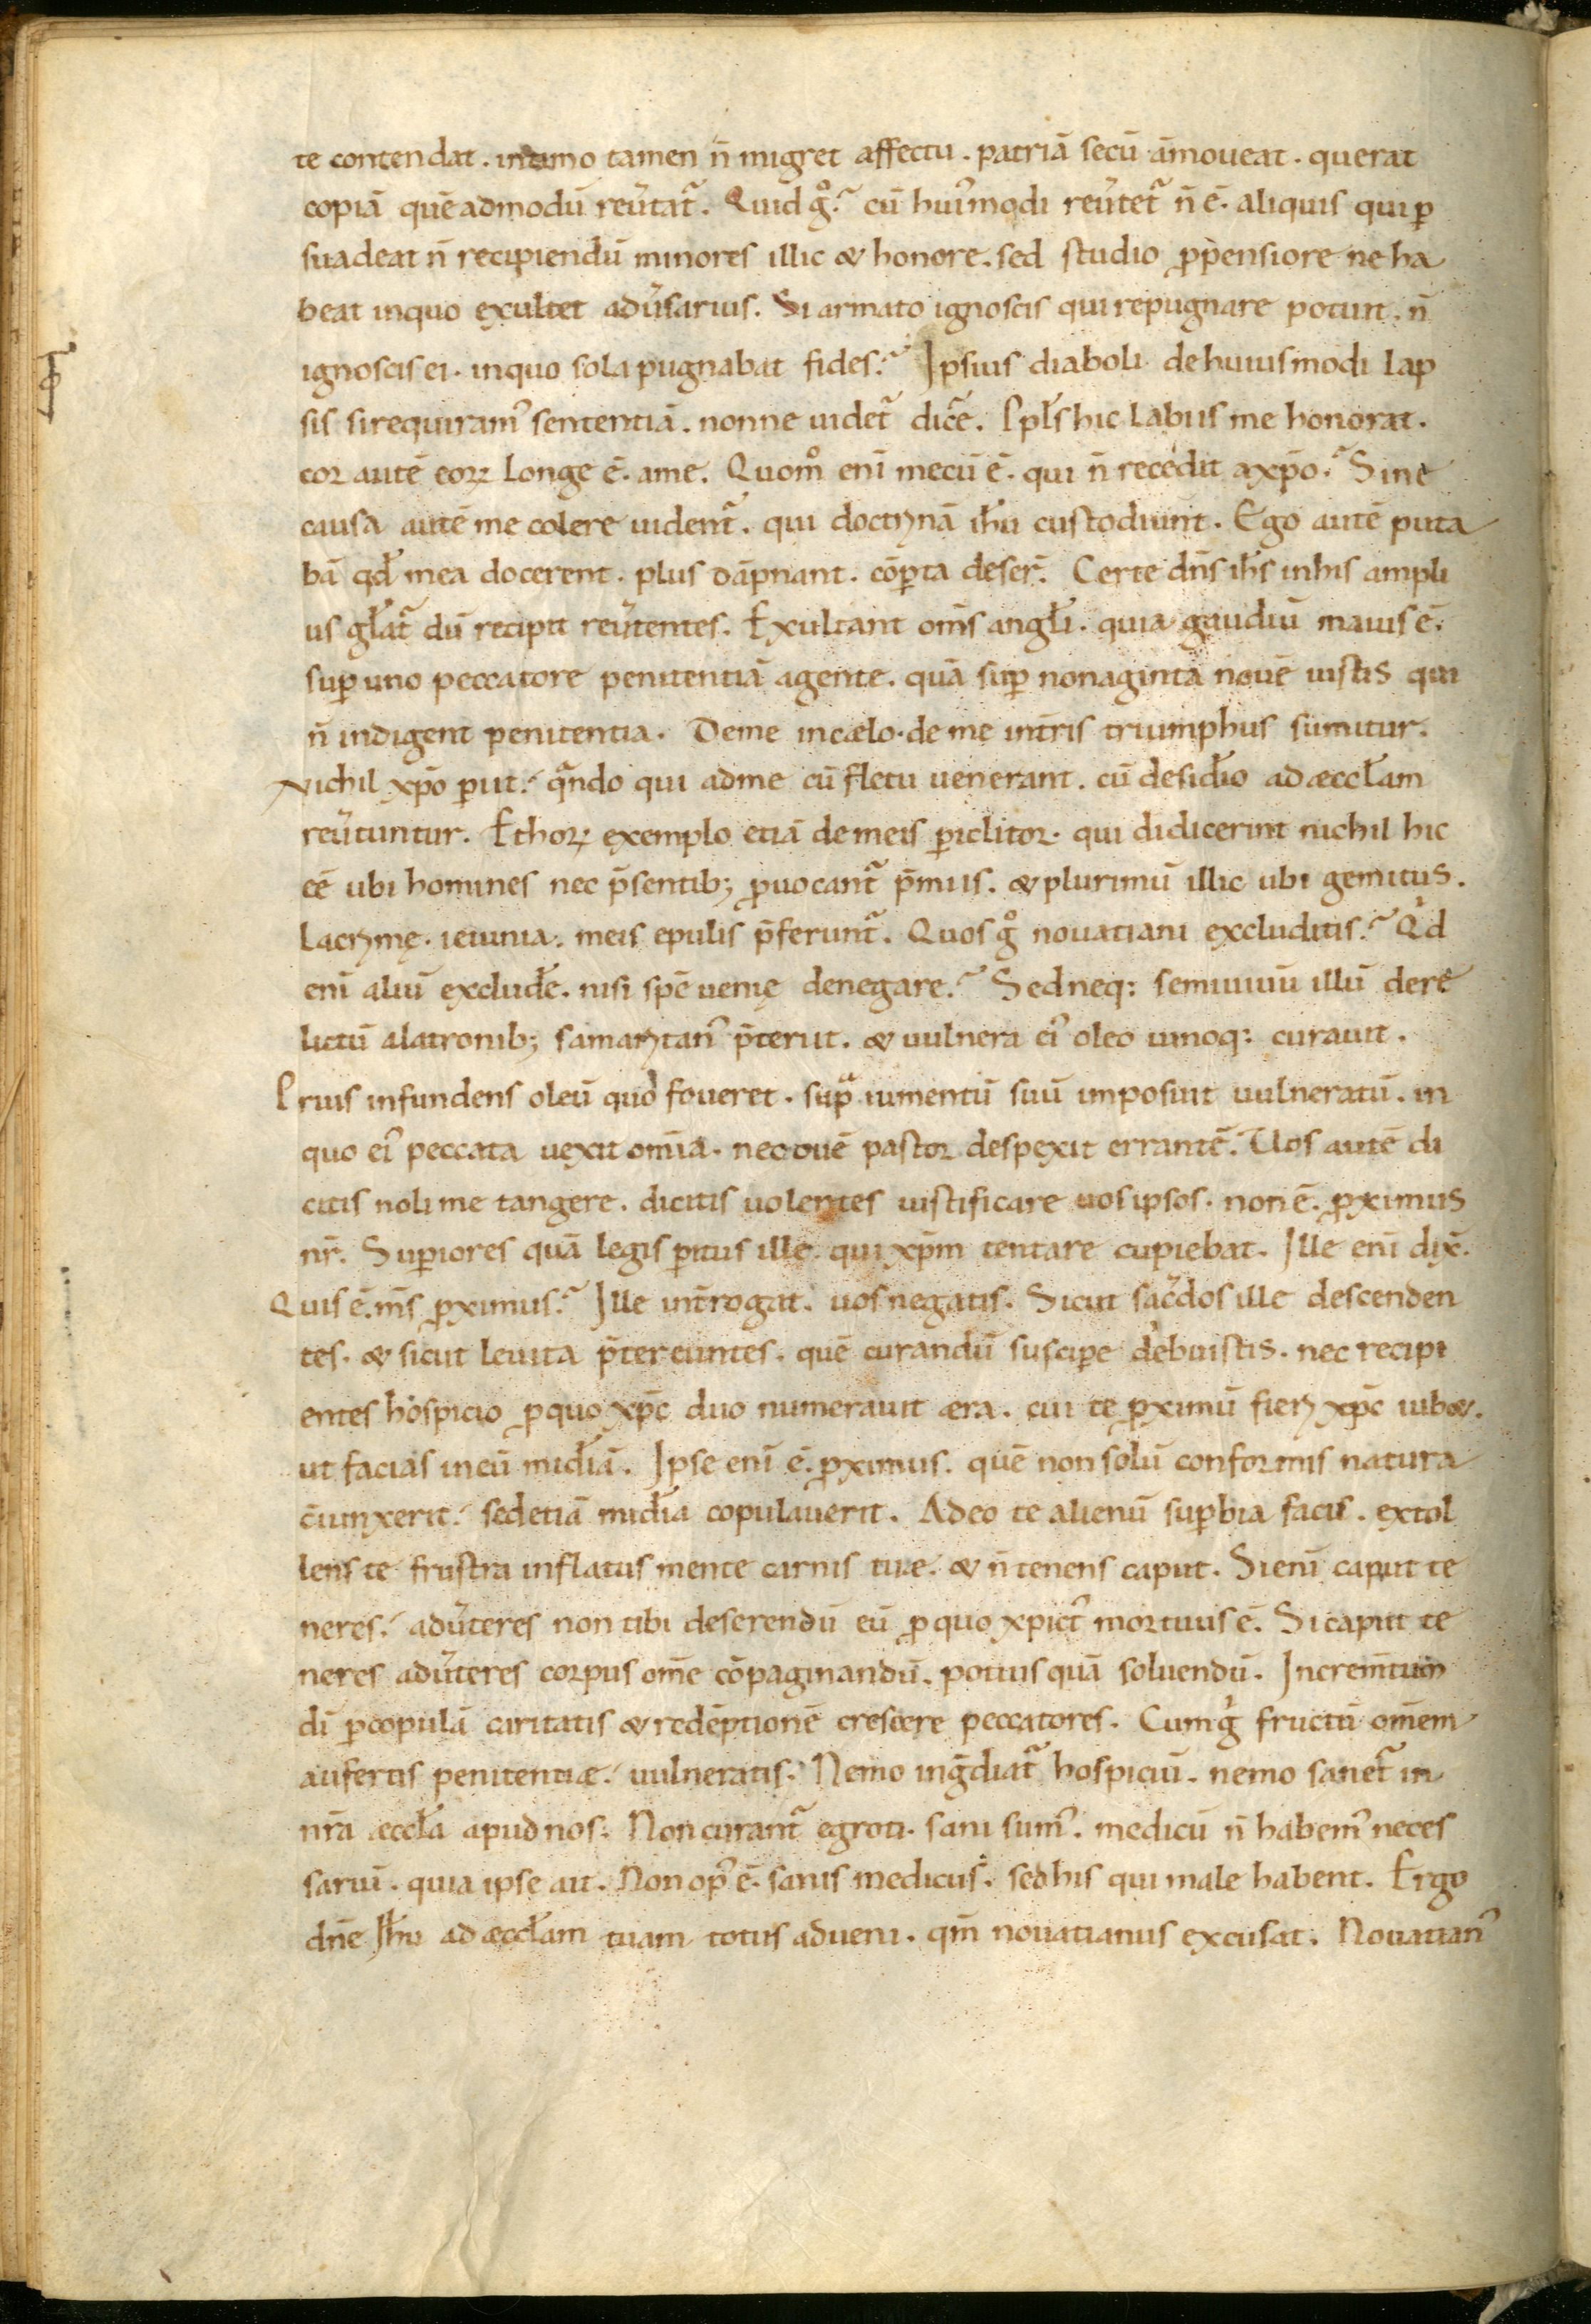 te contendat. intimo tamen n̄ migret affectu. patriā secū āmoueat. querat
copiā quēadmodū reũtat᷑. Quid g̊? cū hui᷒modi reũtet᷑ n̄ ē. aliquis qui ꝑ
suadeat n̄ recipiendū minores illic & honore. sed studio ꝓpensiore ne ha
beat inquo exultet adũsarius. Si armato ignoscis qui repugnare potuit. n̄
ignoscis ei. inquo sola pugnabat fides? Ipsius diaboli de huiusmodi lap
sis si requiram᷒ sententiā. nonne uidet᷑ dicẽ. Ppl̄s hic labiis me honorat.
cor autē eoꝝ longe ē. ame. Quom̊ enī mecū ē. qui n̄ recedit axp̄o? Sine
causa autē me colere uident᷑. qui doctrinā ih̄u custodiunt. Ego autē puta
bā qd̄ mea docerent. plus dāpnant. cōꝑta deser̄. Certe dn̄s ih̄s inhis ampli
us gl̄at᷑ dū recipit reũtentes. Exultant om̄s angl̄i. quia gaudiū maius ē.
suꝑ uno peccatore penitentiā agente. quā suꝑ nonaginta nouē iustis qui
n̄ indigent penitentia. Deme incælo. de me int̄ris triumphus sumitur.
Nichil xp̄o ꝑit. qᷓndo qui adme cū fletu uenerant. cū desid̄io ad æccl̄am
reũtuntur. Ethoꝝ exemplo etiā demeis ꝑiclitor. qui didicerint nichil hic
eē ubi homines nec p̄sentib; ꝓuocant᷑ p̄miis. & plurimū illic ubi gemitus.
lacrimę. ieiunia. meis epulis p̄ferunt᷑. Quos g̊ nouatiani excluditis? Qͥd
enī aliū exclud̄e. nisi spē uenię denegare? Sed neq: semiuiuū illū dere
lictū alatronib; samaritan᷒ p̄teriit. & uulnera ei᷒ oleo uinoq: curauit.
Prius infundens oleū quo foueret. supᷓ iumentū suū imposuit uulneratū. in
quo ei᷒ peccata uexit om̄ia. nec ouē pastor despexit errantē. Uos autē di
citis noli me tangere. dicitis uolentes iustificare uos ipsos. non ē. ꝓximus
nr̄. Suꝑiores quā legis ꝑitus ille. qui xp̄m tentare cupiebat. Ille enī dix̄.
Quis ē. m̄s ꝓximus? Ille int̄rogat. uos negatis. Sicut sac̃dos ille descenden
tes. & sicut leuita p̄tereuntes. quē curandū susciꝑe debuistis. nec recipi
entes hospicio ꝓ quo xp̄c duo numerauit æra. cui te ꝓximū fieri xp̄c iub&.
ut facias ineū mid̄iā. Ipse enī ē. ꝓximus. quē non solū conformis natura
c̄iunxerit. sed etiā mid̄ia copulauerit. Adeo te alienū suꝑbia facis. extol
lens te frustra inflatus mente carnis tuæ. & n̄ tenens caput. Si enī caput te
neres. adũteres non tibi deserendū eū ꝓ quo xpict᷒ mortuus ē. Si caput te
neres adũteres corpus om̄e cōpaginandū. potius quā soluendū. Increm̄tum
dī ꝑcopulā caritatis & redēptionē crescere peccatores. Cum gͥ fructū om̄em
aufertis penitentiæ. uulneratis. Nemo ing̃diat᷑ hospiciū. nemo sanet᷑ in
nr̄a æccl̄a apud nos. Non curant᷑ egroti. sani sum᷒. medicū n̄ habem᷒ neces
sariū. quia ipse ait. Non op᷒ ē. sanis medicus. sed his qui male habent. Ergo
dn̄e ih̄u ad æccl̄am tuam totus adueni. qm̄ nouatianus excusat. Nouatian᷒